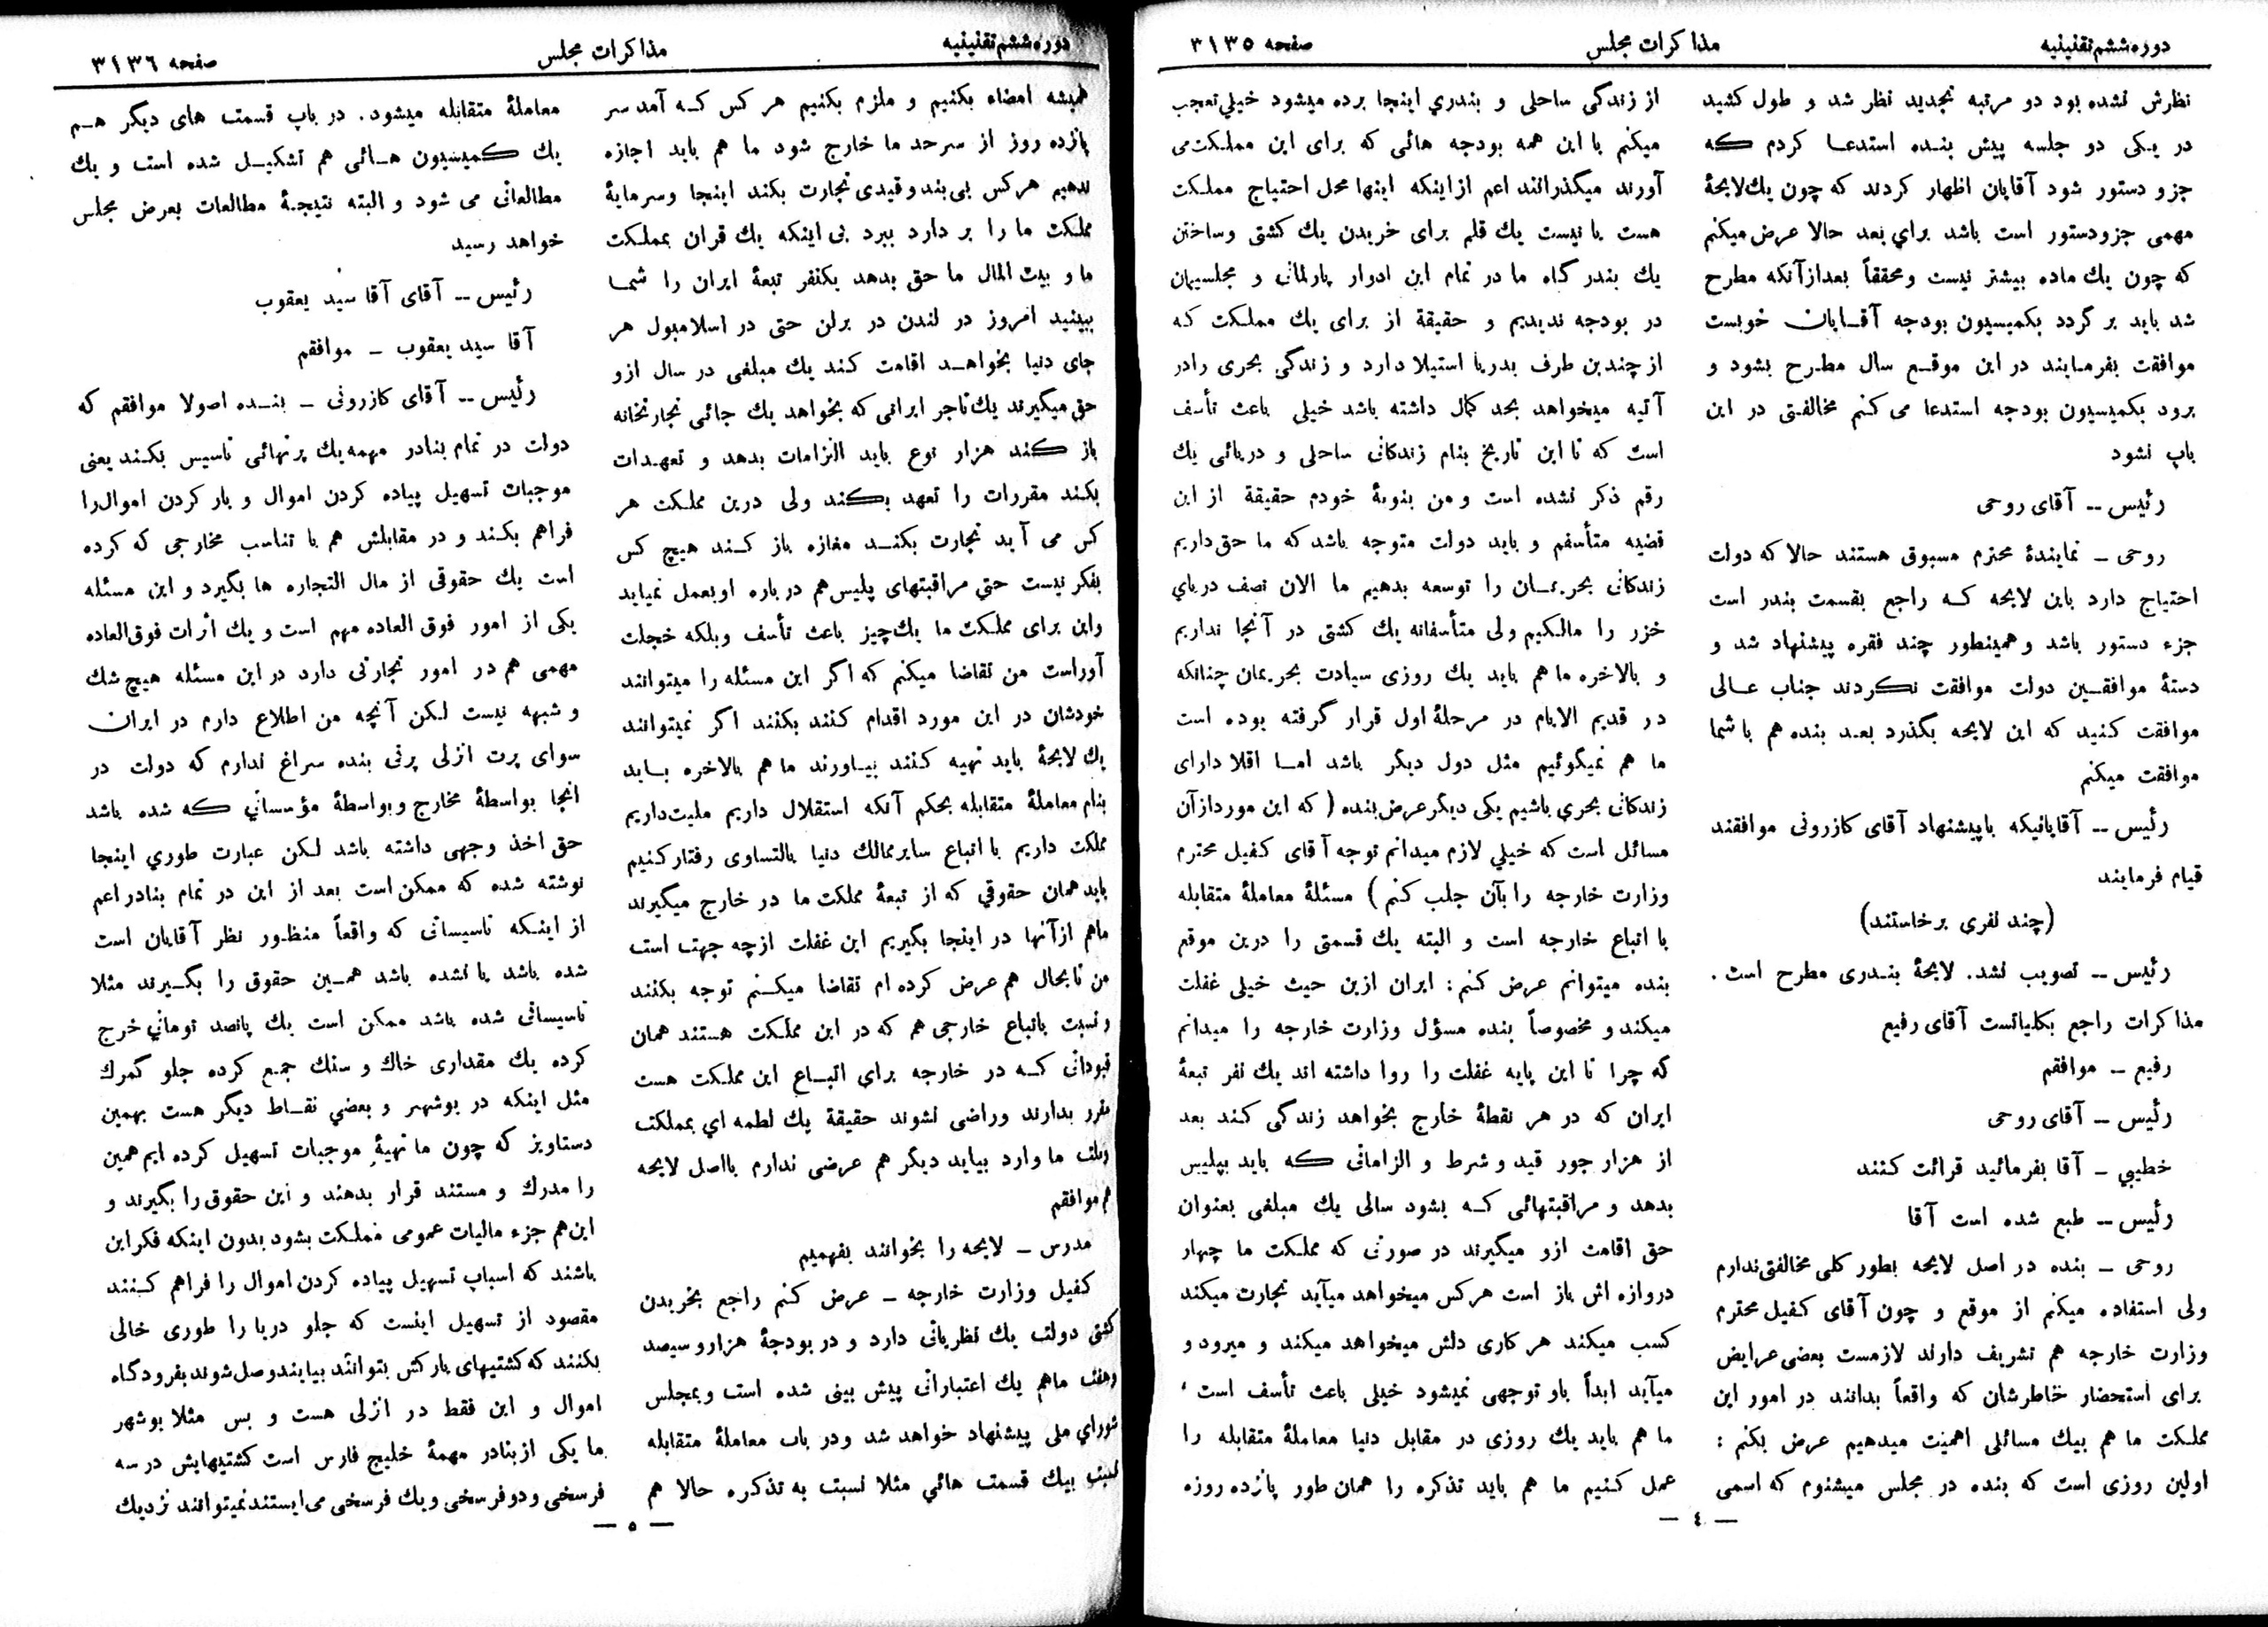 دوره ششم تقنینیه
مذاکرات مجلس
صفحه ۳۱۳۵
نظرش نشده بود دو مرتبه تجدید نظر شد و طول کشید
در یکی دو جلسه پیش بنده استدعا کردم که
جزو دستور شود آقایان اظهار کردند که چون یك لایحهٔ
مهمی جزو دستور است باشد برای بعد حالا عرض میکنم
که چون یك ماده بیشتر نیست و محققاً بعد از آنکه مطرح
شد باید بر گردد بکمیسیون بودجه آقایان خوبست
موافقت بفرمایند در این موقع سال مطرح بشود و
برود بکمیسیون بودجه استدعا می کنم مخالفتی در این
باب نشود
رئیس -- آقای روحی
روحی - نمایندهٔ محترم مسبوق هستند حالا که دولت
احتیاج دارد باین لایحه که راجع بقسمت بندر است
جزء دستور باشد و همینطور چند فقره پیشنهاد شد و
دستهٔ موافقین دولت موافقت نکردند جناب عالی
موافقت کنید که این لایحه بگذرد بعد بنده هم با شما
موافقت میکنم
رئیس -- آقایانیکه باپیشنهاد آقای کازرونی موافقند
قیام فرمایند
(چند نفری برخاستند)
رئیس -- تصویب نشد. لایحهٔ بندری مطرح است .
مذاکرات راجع بکلیاتست آقای رفیع
رفیع - موافقم
رئیس - آقای روحی
خطیبی - آقا بفرمائید قرائت کنند
رئیس -- طبع شده است آقا
روحی - بنده در اصل لایحه بطور کلی مخالفتی ندارم
ولی استفاده میکنم از موقع و چون آقای کفیل محترم
وزارت خارجه هم تشریف دارند لازمست بعضی عرایض
برای استحضار خاطرشان که واقعاً بدانند در امور این
مملکت ما هم بیك مسائلی اهمیت میدهیم عرض بکنم :
اولین روزی است که بنده در مجلس میشنوم که اسمی
از زندگی ساحلی و بندري اینجا برده میشود خیلي تعجب
میکنم با این همه بودجه هائی که برای این مملکت می
آورند میگذرانند اعم از اینکه اینها محل احتیاج مملکت
هست یا نیست یك قلم برای خریدن یك کشتی و ساختن
یك بندر گاه ما در تمام این ادوار پارلمانی و مجلسیمان
در بودجه ندیدیم و حقیقة از برای یك مملکت که
از چندین طرف بدریا استیلا دارد و زندگی بحری را در
آتیه میخواهد بحد کمال داشته باشد خیلی باعث تأسف
است که تا این تاریخ بنام زندکانی ساحلی و دریائی یك
رقم ذکر نشده است و من بنوبهٔ خودم حقیقة از این
قضیه متأسفم و باید دولت متوجه باشد که ما حق داریم
زندکانی بحریمان را توسعه بدهیم ما الان نصف دریاي
خزر را مالکیم ولی متأسفانه یك کشتی در آنجا نداریم
و بالاخره ما هم باید یك روزی سیادت بحریمان چنانکه
در قدیم الایام در مرحلهٔ اول قرار گرفته بوده است
ما هم نمیگوئیم مثل دول دیگر باشد اما اقلا دارای
زندکانی بحري باشیم یکی دیگر عرض بنده ( که این مورد از آن
مسائل است که خیلي لازم میدانم توجه آقای کفیل محترم
وزارت خارجه را بآن جلب کنم ) مسئلهٔ معاملهٔ متقابله
با اتباع خارجه است و البته یك قسمتی را درین موقع
بنده میتوانم عرض کنم : ایران ازین حیث خیلی غفلت
میکند و مخصوصاً بنده مسؤل وزارت خارجه را میدانم
که چرا تا این پایه غفلت را روا داشته اند یك نفر تبعهٔ
ایران که در هر نقطهٔ خارج بخواهد زندگی کند بعد
از هزار جور قید و شرط و الزاماتی که باید بپلیس
بدهد و مراقبتهائی که بشود سالی یك مبلغی بعنوان
حق اقامت ازو میگیرند در صورتی که مملکت ما چهار
دروازه اش باز است هرکس میخواهد میآید تجارت میکند
کسب میکند هر کاری دلش میخواهد میکند و میرود و
میآید ابداً باو توجهی نمیشود خیلی باعث تأسف است ،
ما هم باید یك روزی در مقابل دنیا معاملهٔ متقابله را
عمل کنیم ما هم باید تذکره را همان طور پانزده روزه
— ٤ —
دوره ششم تقنینیه
مذاکرات مجلس
صفحه ۳۱۳٦
همیشه امضاء بکنیم و ملزم بکنیم هر کس که آمد سر
پانزده روز از سرحد ما خارج شود ما هم باید اجازه
ندهیم هر کس بی بند و قیدی تجارت بکند اینجا و سرمایهٔ
مملکت ما را بر دارد ببرد بی اینکه یك قران بمملکت
ما و بیت المال ما حق بدهد یکنفر تبعهٔ ایران را شما
ببینید امروز در لندن در برلن حتی در اسلامبول هر
جای دنیا بخواهد اقامت کند یك مبلغی در سال ازو
حق میگیرند یك تاجر ایرانی که بخواهد یك جائی تجارتخانه
باز کند هزار نوع باید التزامات بدهد و تعهدات
بکند مقررات را تعهد بکند ولی درین مملکت هر
کس می آید تجارت بکند مغازه باز کند هیچ کس
بفکر نیست حتي مراقبتهای پلیس هم در باره او بعمل نمیاید
واین برای مملکت ما یك چیز باعث تأسف وبلکه خجلت
آوراست من تقاضا میکنم که اگر این مسئله را میتوانند
خودشان در این مورد اقدام کنند بکنند اگر نمیتوانند
یك لایحهٔ باید تهیه کنند بیاورند ما هم بالاخره باید
بنام معاملهٔ متقابله بحکم آنکه استقلال داریم ملیت داریم
مملکت داریم با اتباع سایر ممالك دنیا بالتساوی رفتار کنیم
باید همان حقوقي که از تبعهٔ مملکت ما در خارج میگیرند
ماهم از آنها در اینجا بگیریم این غفلت از چه جهت است
من تا بحال هم عرض کرده ام تقاضا میکنم توجه بکنند
و نسبت باتباع خارجی هم که در این مملکت هستند همان
قیوداتی که در خارجه برای اتباع این مملکت هست
مقرر بدارند وراضی نشوند حقیقة یك لطمه اي بمملکت
وملت ما وارد بیاید دیگر هم عرضی ندارم بااصل لایحه
هم موافقم
مدرس - لایحه را بخوانند بفهمیم
کفیل وزارت خارجه - عرض کنم راجع بخریدن
کشتی دولت یك نظریاتی دارد و در بودجهٔ هزار و سیصد
وهفت ماهم یك اعتباراتی پیش بینی شده است و بمجلس
شورای ملی پیشنهاد خواهد شد ودر باب معاملهٔ متقابله
نسبت بیك قسمت هائي مثلا نسبت به تذکره حالا هم
معاملهٔ متقابله میشود. در باب قسمت های دیگر هم
یك کمیسیون هائی هم تشکیل شده است و یك
مطالعاتی می شود و البته نتیجهٔ مطالعات بعرض مجلس
خواهد رسید
رئیس -- آقای آقا سید یعقوب
آقا سید یعقوب - موافقم
رئیس -- آقای کازرونی - بنده اصولا موافقم که
دولت در تمام بنادر مهمه یك پرتهائی تاسیس بکند یعنی
موجبات تسهیل پیاده کردن اموال و بار کردن اموال را
فراهم بکند و در مقابلش هم با تناسب مخارجی که کرده
است یك حقوقی از مال التجاره ها بگیرد و این مسئله
یکی از امور فوق العاده مهم است و یك اثرات فوق العاده
مهمی هم در امور تجارتی دارد در این مسئله هیچ شك
و شبهه نیست لکن آنچه من اطلاع دارم در ایران
سوای پرت انزلی پرتی بنده سراغ ندارم که دولت در
انجا بواسطهٔ مخارج و بواسطهٔ مؤسساتي که شده باشد
حق اخذ وجهی داشته باشد لکن عبارت طوري اینجا
نوشته شده که ممکن است بعد از این در تمام بنادر اعم
از اینکه تاسیساتی که واقعاً منظور نظر آقایان است
شده باشد یا نشده باشد همین حقوق را بگیرند مثلا
تاسیساتی شده باشد ممکن است یك پانصد تومانی خرج
کرده یك مقداری خاك و سنك جمع کرده جلو گمرك
مثل اینکه در بوشهر و بعضي نقاط دیگر هست بهمین
دستاویز که چون ما تهیهٔ موجبات تسهیل کرده ایم همین
را مدرك و مستند قرار بدهند و این حقوق را بگیرند و
این هم جزء مالیات عمومی مملکت بشود بدون اینکه فکر این
باشند که اسباب تسهیل پیاده کردن اموال را فراهم کنند
مقصود از تسهیل اینست که جلو دریا را طوری خالی
بکنند که کشتیهای بارکش بتوانند بیایند وصل شوند بفرودگاه
اموال و این فقط در انزلی هست و بس مثلا بوشهر
ما یکی از بنادر مهمهٔ خلیج فارس است کشتیهایش در سه
فرسخی و دو فرسخی و یك فرسخی می ایستند نمیتوانند نزدیك
— ٥ —